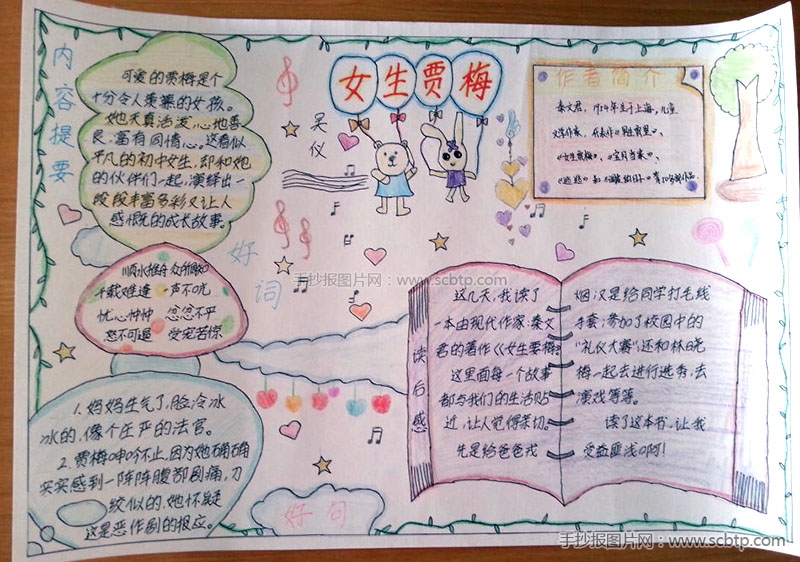 女生贾梅
吴仪
内容提要
可爱的贾梅是个
十分令人羡慕的女孩。
她天真活泼,心地善
良,富有同情心,这看似
平凡的初中女生,却和她
的伙伴们一起,演绎出一
段段丰富多彩又让人
感慨的成长故事。
作者简介
秦文君,
年生于上海,儿童
文学作家,代表作《男生贾里》、
《女生贾梅》、《宝贝当家》、
好词
顺水推舟 众所周知
千载难逢 一声不吭
忧心忡忡 忿忿不平
怒不可遏 受宠若惊
手抄报图片网:www.scbtp.com
读后感
这几天,我读了
一本由现代作家:秦文
君的著作《女生贾梅》
这里面每一个故事
都与我们的生活贴
近,让人觉得亲切。
先是给爸爸戒
烟,又是给同学打毛线
手套;参加了校园中的
“礼仪大赛”;还和林晓
梅一起去进行选秀、去
演戏等等。
读了这本书,让我
受益匪浅啊!
1.妈妈生气了,脸冷冰
冰的,像个庄严的法官。
2.贾梅呻吟不止,因为她确确
实实感到一阵阵腹部剧痛,刀
绞似的,她怀疑
这是恶作剧的报应。
好句
手抄报图片网:www.scbtp.com